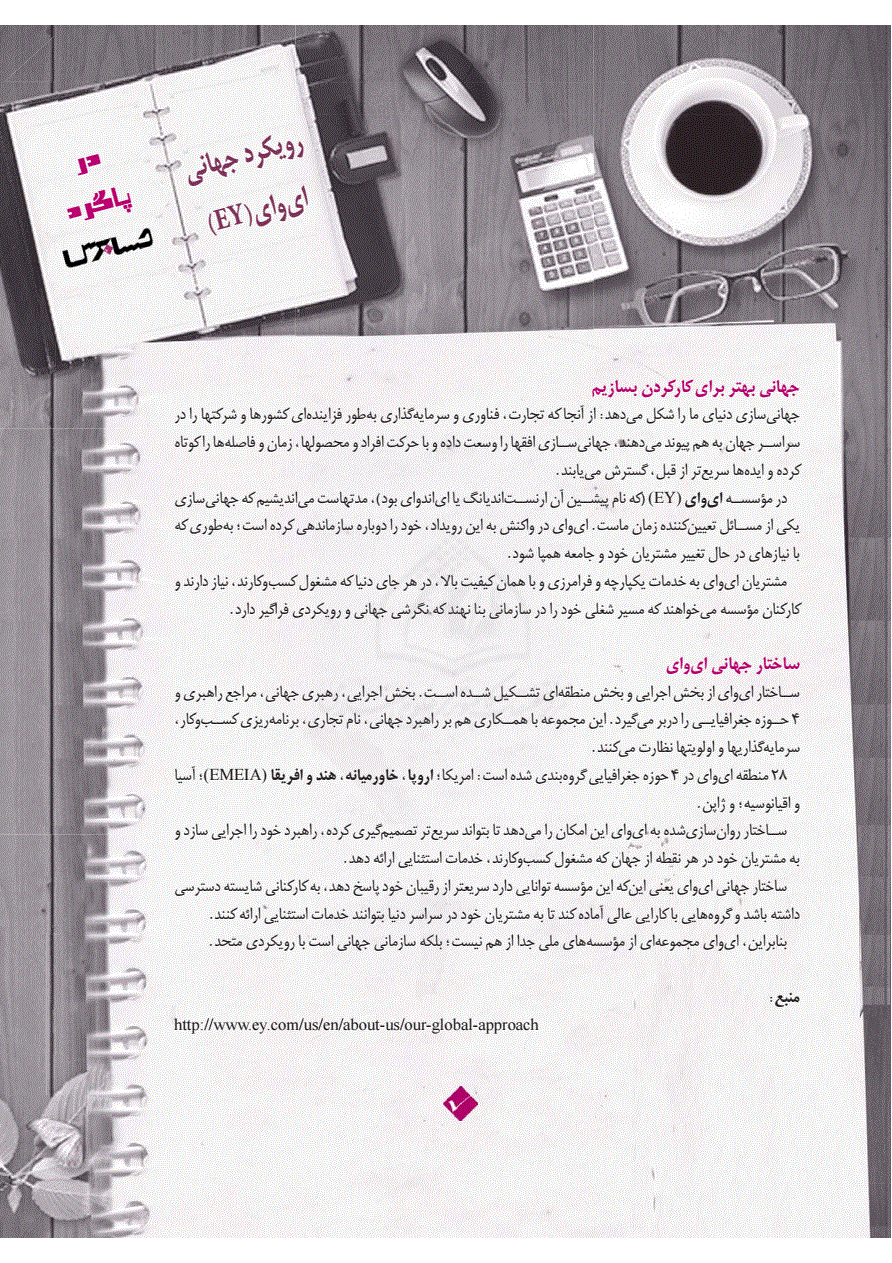 رویکرد جهانی
ای‌وای (EY)
در
پاگرد
حسابرس
جهانی بهتر برای کارکردن بسازیم
جهانی‌سازی دنیای ما را شکل می‌دهد: از آنجا که تجارت، فناوری و سرمایه‌گذاری به‌طور فزاینده‌ای کشورها و شرکتها را در
سراسـر جهان به هم پیوند می‌دهند، جهانی‌سـازی افقها را وسعت داده و با حرکت افراد و محصولها، زمان و فاصله‌ها را کوتاه
کرده و ایده‌ها سریع‌تر از قبل، گسترش می‌یابند.
در مؤسسـه ای‌وای (EY) (که نام پیشـین آن ارنسـت‌اندیانگ یا ای‌اندوای بود)، مدتهاست می‌اندیشیم که جهانی‌سازی
یکی از مسـائل تعیین‌کننده زمان ماست. ای‌وای در واکنش به این رویداد، خود را دوباره سازماندهی کرده است؛ به‌طوری که
با نیازهای در حال تغییر مشتریان خود و جامعه همپا شود.
مشتریان ای‌وای به خدمات یکپارچه و فرامرزی و با همان کیفیت بالا، در هر جای دنیا که مشغول کسب‌وکارند، نیاز دارند و
کارکنان مؤسسه می‌خواهند که مسیر شغلی خود را در سازمانی بنا نهند که نگرشی جهانی و رویکردی فراگیر دارد.
ساختار جهانی ای‌وای
سـاختار ای‌وای از بخش اجرایی و بخش منطقه‌ای تشـکیل شـده اسـت. بخش اجرایی، رهبری جهانی، مراجع راهبری و
۴ حـوزه جغرافیایـی را دربر می‌گیرد. این مجموعه با همـکاری هم بر راهبرد جهانی، نام تجاری، برنامه‌ریزی کسـب‌وکار،
سرمایه‌گذاریها و اولویتها نظارت می‌کنند.
۲۸ منطقه ای‌وای در ۴ حوزه جغرافیایی گروه‌بندی شده است: امریکا؛ اروپا، خاورمیانه، هند و افریقا (EMEIA)؛ آسیا
و اقیانوسیه؛ و ژاپن.
سـاختار روان‌سازی‌شده به ای‌وای این امکان را می‌دهد تا بتواند سریع‌تر تصمیم‌گیری کرده، راهبرد خود را اجرایی سازد و
به مشتریان خود در هر نقطه از جهان که مشغول کسب‌وکارند، خدمات استثنایی ارائه دهد.
ساختار جهانی ای‌وای یعنی این‌که این مؤسسه توانایی دارد سریعتر از رقیبان خود پاسخ دهد، به کارکنانی شایسته دسترسی
داشته باشد و گروه‌هایی با کارایی عالی آماده کند تا به مشتریان خود در سراسر دنیا بتوانند خدمات استثنایی ارائه کنند.
بنابراین، ای‌وای مجموعه‌ای از مؤسسه‌های ملی جدا از هم نیست؛ بلکه سازمانی جهانی است با رویکردی متحد.
منبع:
http://www.ey.com/us/en/about-us/our-global-approach